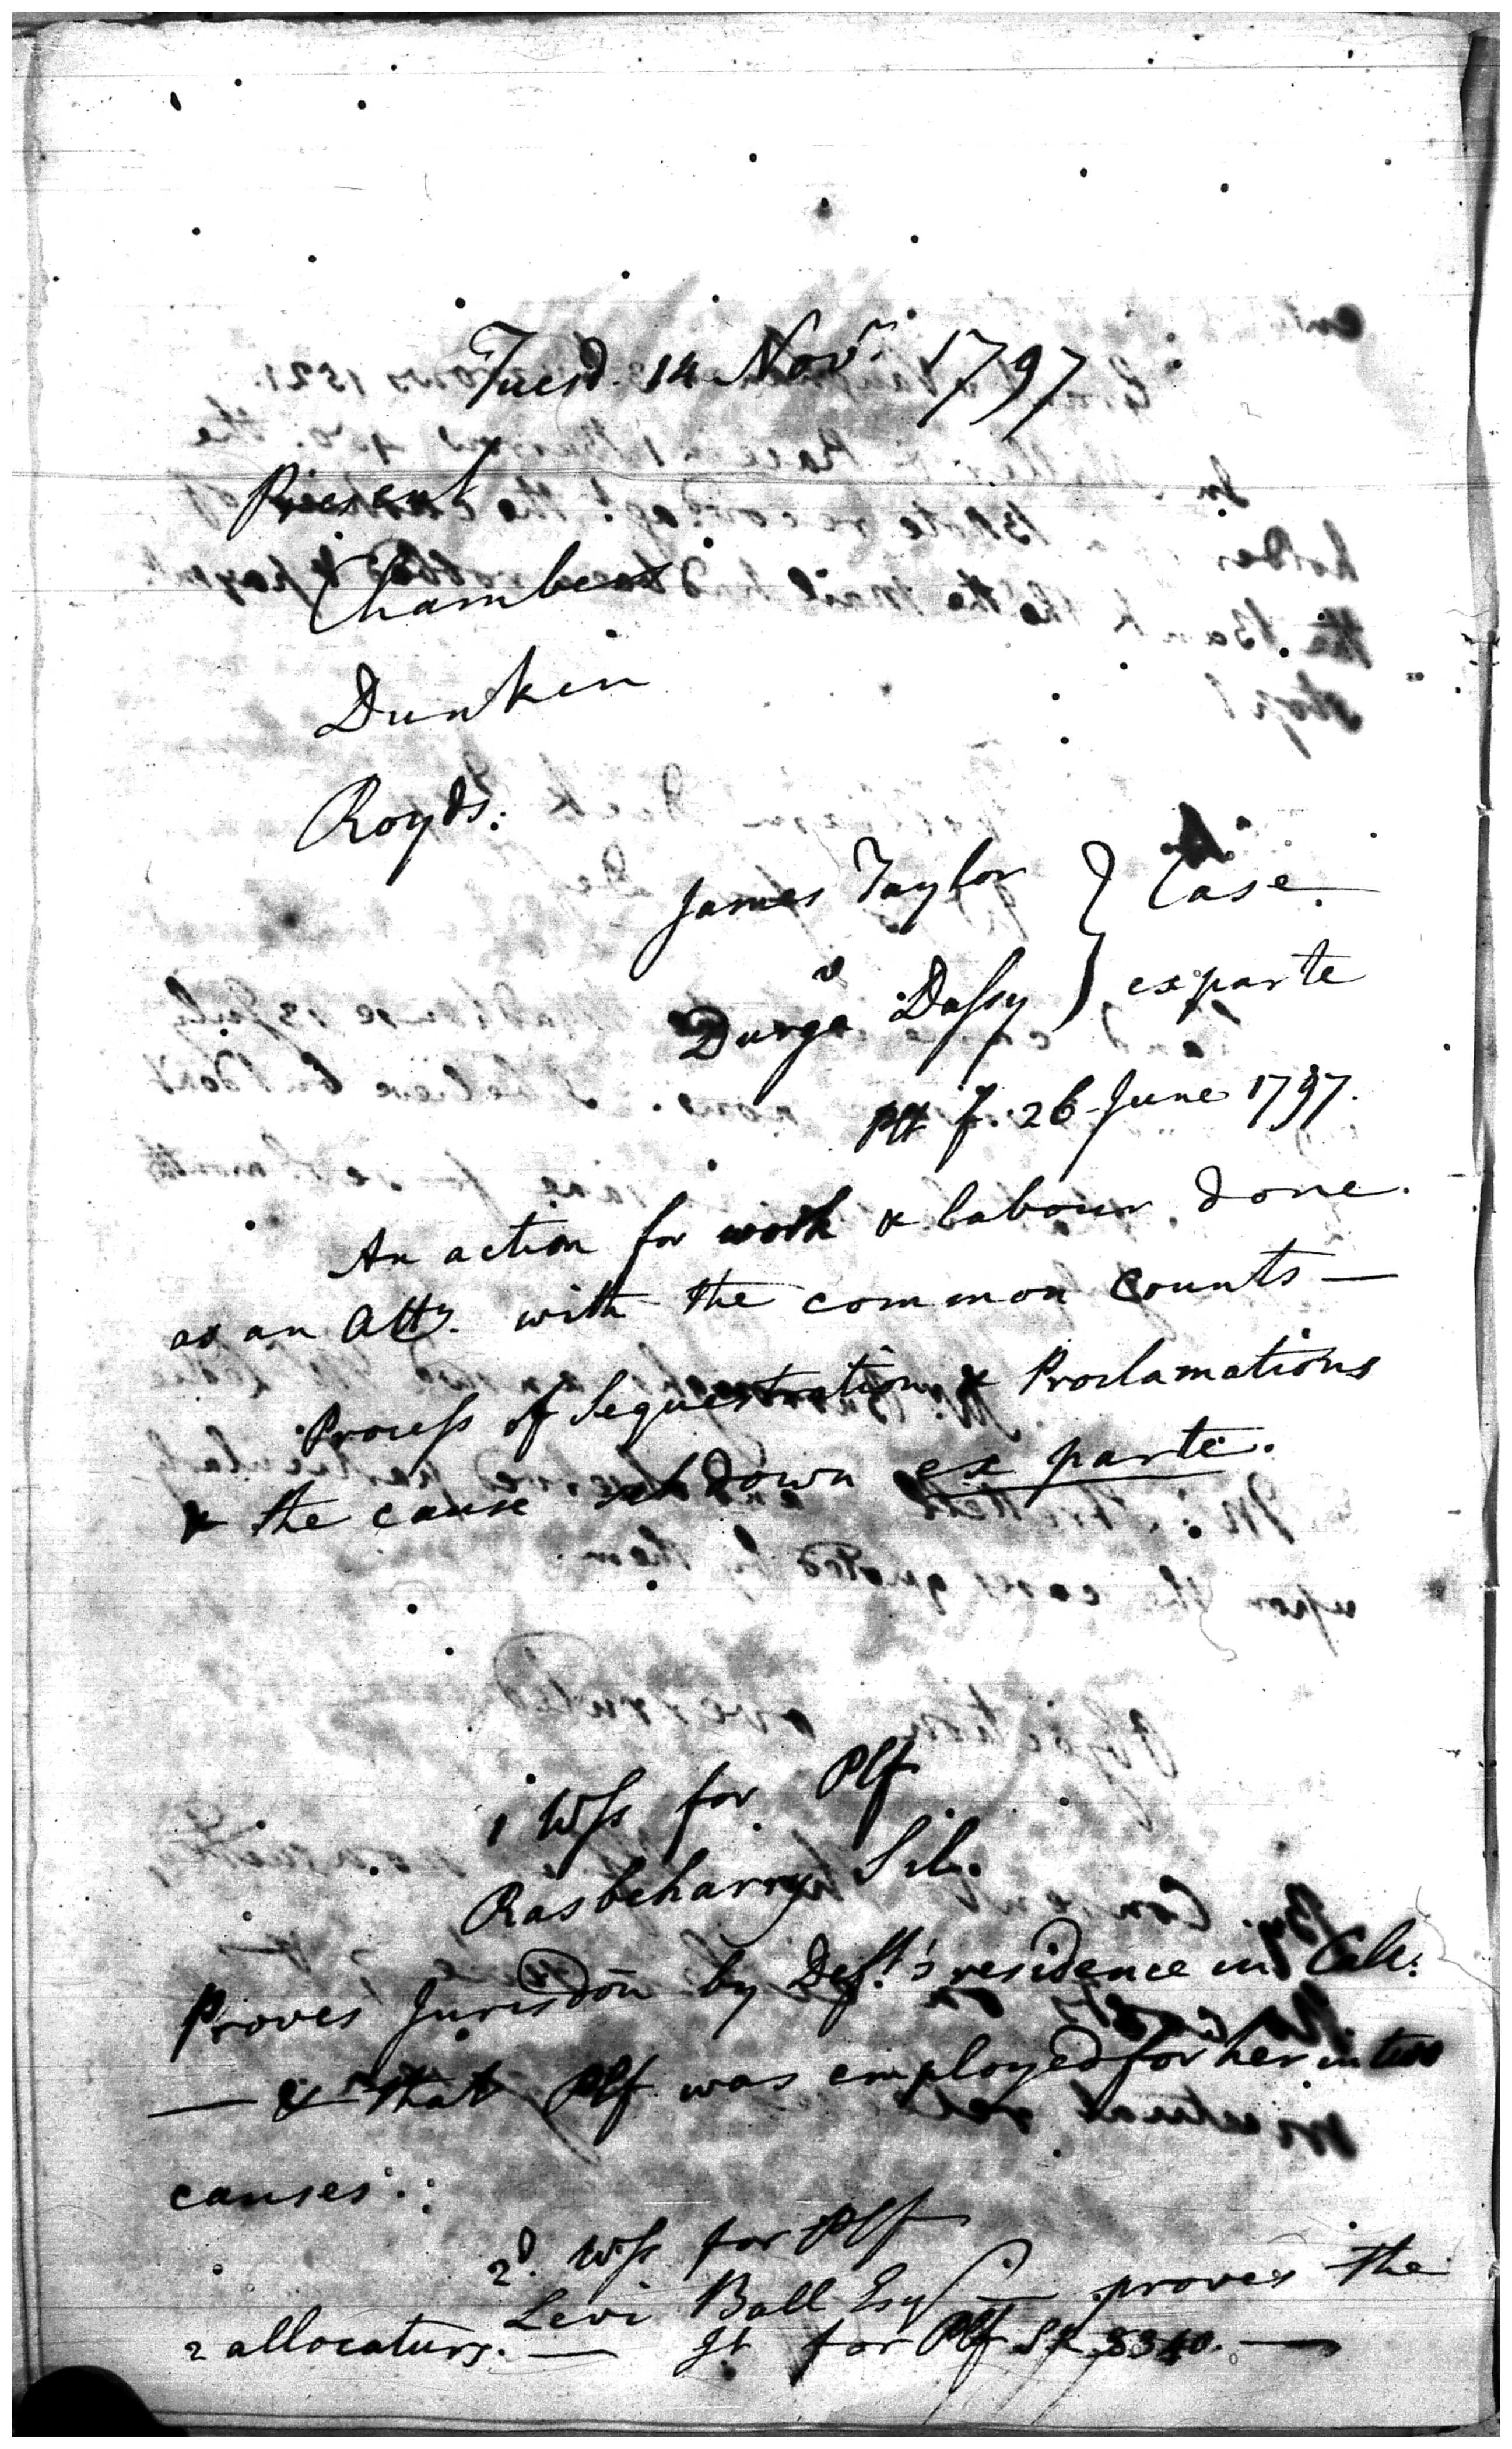 Tuesd. 14 Novr. 1797
Present
Chambers
Dunkin
Royds.
James Taylor } Case.
v
Durga Dassy } exparte
plt f. 26 June 1797.
An action for work & labour done.
as an Atty. with the common Counts —
Process of Sequestration & Proclamations
& the cause set down ex parte.
1 Wss for Plf
Rasbeharry Sil.
Proves Jurisdōn by Deft's residence in Calc:
— & that Plf was employed for her in two
causes.
2d. Wss for Plf
Levi Ball Esqr — proves the
2 allocaturs. — Jt for Plf SR 3340. —